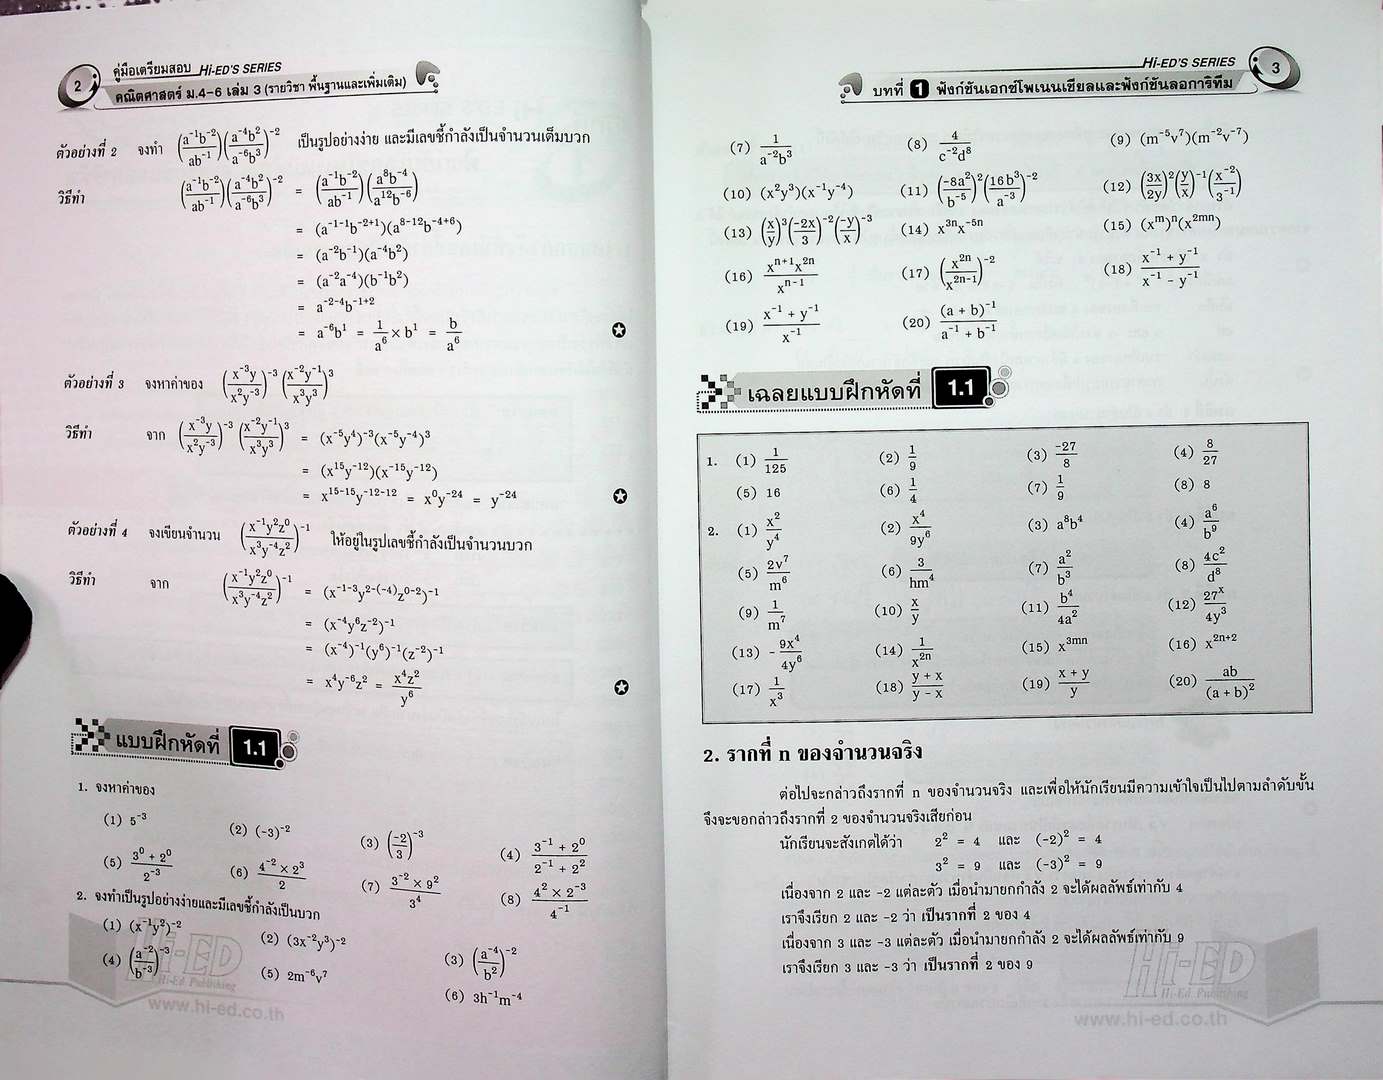 2 คู่มือเตรียมสอบ Hi-ED'S SERIES
คณิตศาสตร์ ม.4-6 เล่ม 3 (รายวิชา พื้นฐานและเพิ่มเติม)
ตัวอย่างที่ 2 จงทำ (a⁻¹b⁻²/ab⁻¹)(a⁻⁴b²/a⁻⁶b³)⁻² เป็นรูปอย่างง่าย และมีเลขชี้กำลังเป็นจำนวนเต็มบวก
วิธีทำ (a⁻¹b⁻²/ab⁻¹)(a⁻⁴b²/a⁻⁶b³)⁻² = (a⁻¹b⁻²/ab⁻¹)(a⁸b⁻⁴/a¹²b⁻⁶)
= (a⁻¹⁻¹b⁻²⁺¹)(a⁸⁻¹²b⁻⁴⁺⁶)
= (a⁻²b⁻¹)(a⁻⁴b²)
= (a⁻²a⁻⁴)(b⁻¹b²)
= a⁻²⁻⁴b⁻¹⁺²
= a⁻⁶b¹ = 1/a⁶ × b¹ = b/a⁶
ตัวอย่างที่ 3 จงหาค่าของ (x⁻³y/x²y⁻³)⁻³ (x⁻²y⁻¹/x³y³)³
วิธีทำ จาก (x⁻³y/x²y⁻³)⁻³ (x⁻²y⁻¹/x³y³)³ = (x⁻⁵y⁴)⁻³(x⁻⁵y⁻⁴)³
= (x¹⁵y⁻¹²)(x⁻¹⁵y⁻¹²)
= x¹⁵⁻¹⁵y⁻¹²⁻¹² = x⁰y⁻²⁴ = y⁻²⁴
ตัวอย่างที่ 4 จงเขียนจำนวน (x⁻¹y²z⁰/x³y⁻⁴z²)⁻¹ ให้อยู่ในรูปเลขชี้กำลังเป็นจำนวนบวก
วิธีทำ จาก (x⁻¹y²z⁰/x³y⁻⁴z²)⁻¹ = (x⁻¹⁻³y²⁻⁽⁻⁴⁾z⁰⁻²)⁻¹
= (x⁻⁴y⁶z⁻²)⁻¹
= (x⁻⁴)⁻¹(y⁶)⁻¹(z⁻²)⁻¹
= x⁴y⁻⁶z² = x⁴z²/y⁶
แบบฝึกหัดที่ 1.1
1. จงหาค่าของ
(1) 5⁻³ (2) (-3)⁻² (3) (-2/3)⁻³ (4) (3⁻¹ + 2⁰)/(2⁻¹ + 2²)
(5) (3⁰ + 2⁰)/2⁻³ (6) (4⁻² × 2³)/2 (7) (3⁻² × 9²)/3⁴ (8) (4² × 2⁻³)/4⁻¹
2. จงทำเป็นรูปอย่างง่ายและมีเลขชี้กำลังเป็นบวก
(1) (x⁻¹y²)⁻² (2) (3x⁻²y³)⁻² (3) (a⁻⁴/b²)⁻²
(4) (a⁻²/b⁻³)⁻³ (5) 2m⁻⁶v⁷ (6) 3h⁻¹m⁻⁴
Hi-ED
Hi-Ed Publishing
www.hi-ed.co.th
Hi-ED'S SERIES 3
บทที่ 1 ฟังก์ชันเอกซ์โพเนนเชียลและฟังก์ชันลอการิทึม
(7) 1/a⁻²b³ (8) 4/c⁻²d⁸ (9) (m⁻⁵v⁷)(m⁻²v⁻⁷)
(10) (x²y³)(x⁻¹y⁻⁴) (11) (-8a²/b⁻⁵)²(16b³/a⁻³)⁻² (12) (3x/2y)²(y/x)⁻¹(x⁻²/3⁻¹)
(13) (x/y)³(-2x/3)⁻²(-y/x)⁻³ (14) x³ⁿx⁻⁵ⁿ (15) (xᵐ)ⁿ(x²ᵐⁿ)
(16) xⁿ⁺¹x²ⁿ/xⁿ⁻¹ (17) (x²ⁿ/x²ⁿ⁻¹)⁻² (18) (x⁻¹ + y⁻¹)/(x⁻¹ - y⁻¹)
(19) (x⁻¹ + y⁻¹)/x⁻¹ (20) (a + b)⁻¹/(a⁻¹ + b⁻¹)
เฉลยแบบฝึกหัดที่ 1.1
1. (1) 1/125 (2) 1/9 (3) -27/8 (4) 8/27
(5) 16 (6) 1/4 (7) 1/9 (8) 8
2. (1) x²/y⁴ (2) x⁴/9y⁶ (3) a⁸b⁴ (4) a⁶/b⁹
(5) 2v⁷/m⁶ (6) 3/hm⁴ (7) a²/b³ (8) 4c²/d⁸
(9) 1/m⁷ (10) x/y (11) b⁴/4a² (12) 27ˣ/4y³
(13) -9x⁴/4y⁶ (14) 1/x²ⁿ (15) x³ᵐⁿ (16) x²ⁿ⁺²
(17) 1/x³ (18) (y + x)/(y - x) (19) (x + y)/y (20) ab/(a + b)²
2. รากที่ n ของจำนวนจริง
ต่อไปจะกล่าวถึงรากที่ n ของจำนวนจริง และเพื่อให้นักเรียนมีความเข้าใจเป็นไปตามลำดับขั้น
จึงจะขอกล่าวถึงรากที่ 2 ของจำนวนจริงเสียก่อน
นักเรียนจะสังเกตได้ว่า 2² = 4 และ (-2)² = 4
3² = 9 และ (-3)² = 9
เนื่องจาก 2 และ -2 แต่ละตัว เมื่อนำมายกกำลัง 2 จะได้ผลลัพธ์เท่ากับ 4
เราจึงเรียก 2 และ -2 ว่า เป็นรากที่ 2 ของ 4
เนื่องจาก 3 และ -3 แต่ละตัว เมื่อนำมายกกำลัง 2 จะได้ผลลัพธ์เท่ากับ 9
เราจึงเรียก 3 และ -3 ว่า เป็นรากที่ 2 ของ 9
Hi-ED
Hi-Ed Publishing
www.hi-ed.co.th